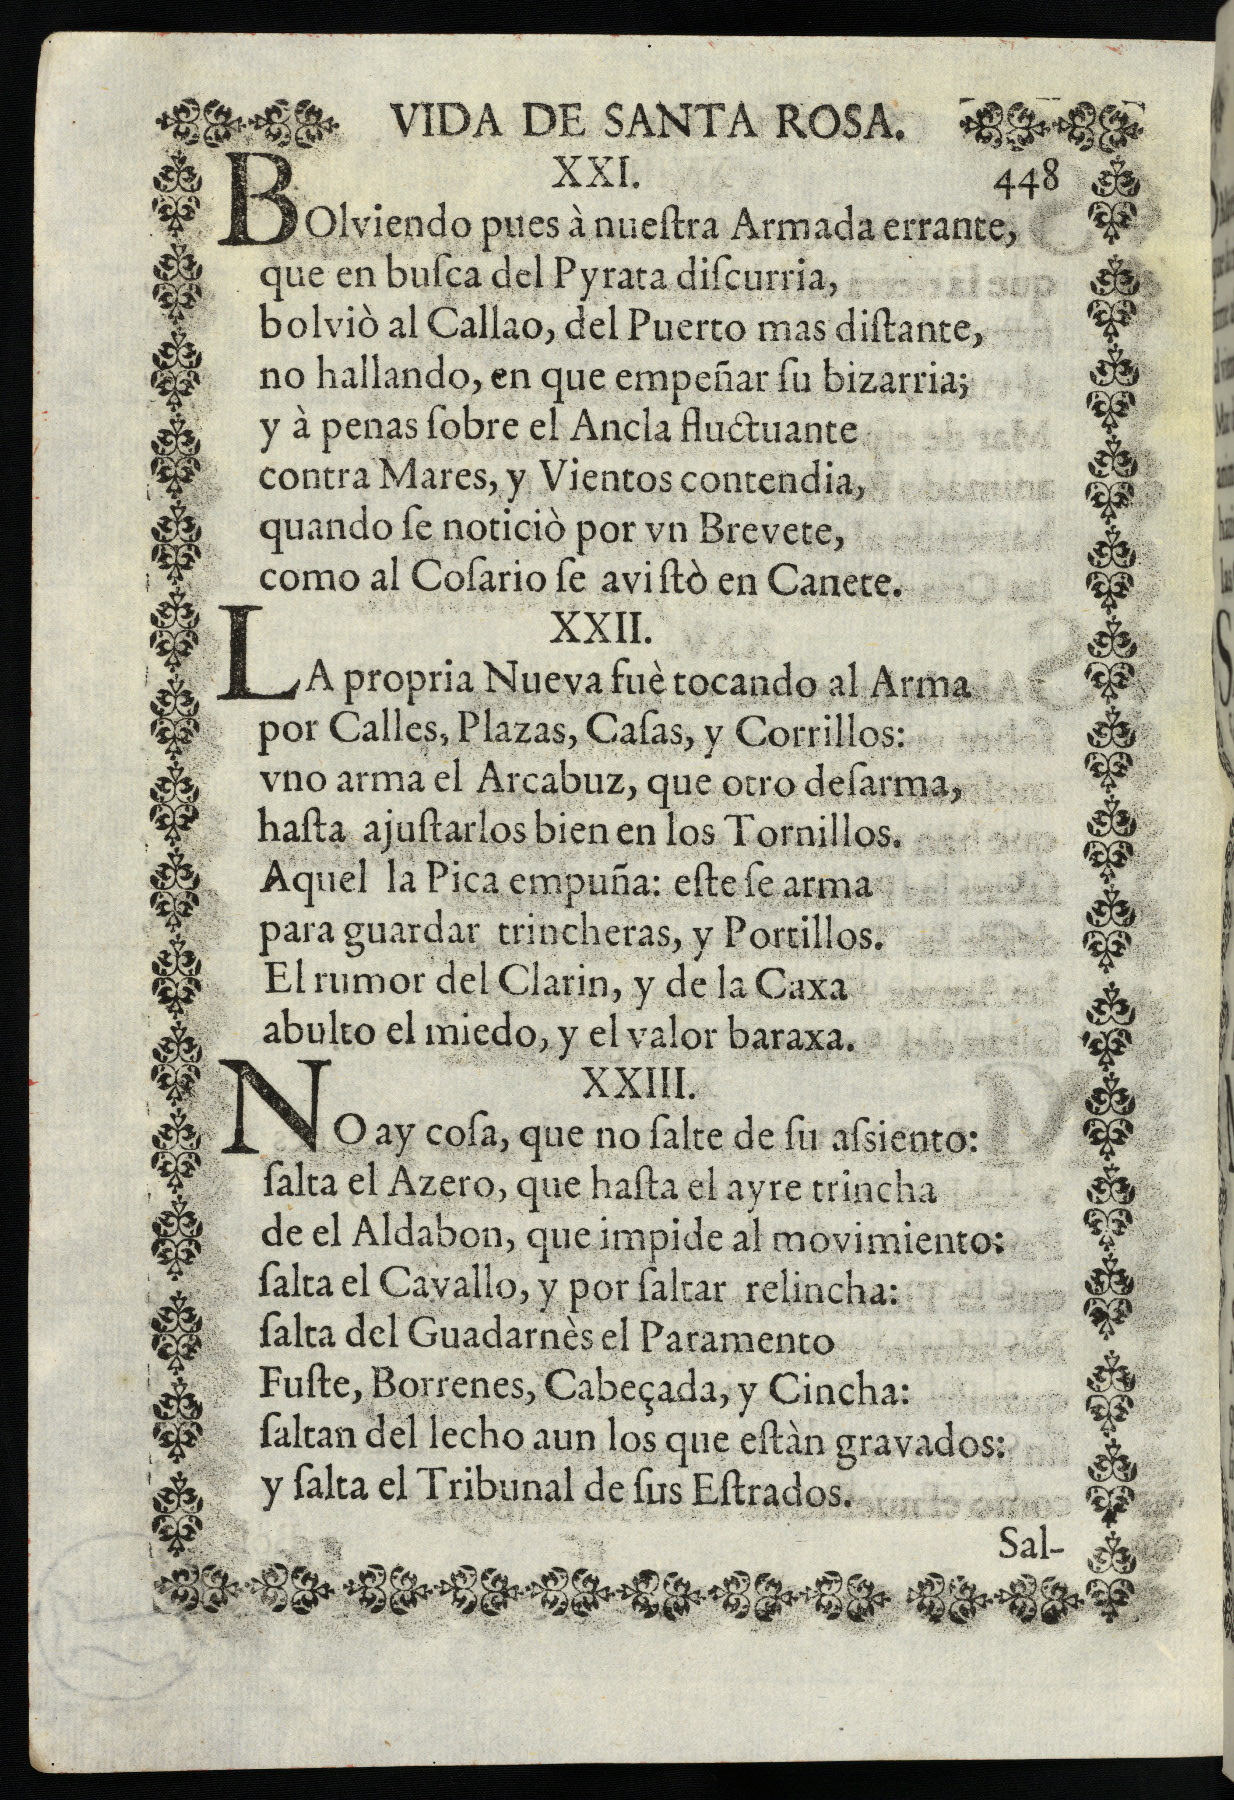 VIDA DE SANTA ROSA.
XXI. 448
BOlviendo pues à nueſtra Armada errante,
que en buſca del Pyrata diſcurria,
bolviò al Callao, del Puerto mas diſtante,
no hallando, en que empeñar ſu bizarria;
y à penas ſobre el Ancla fluctuante
contra Mares, y Vientos contendia,
quando ſe noticiò por vn Brevete,
como al Coſario ſe aviſtò en Canete.
XXII.
LA propria Nueva fuè tocando al Arma
por Calles, Plazas, Caſas, y Corrillos:
vno arma el Arcabuz, que otro deſarma,
haſta ajuſtarlos bien en los Tornillos.
Aquel la Pica empuña: eſte ſe arma
para guardar trincheras, y Portillos.
El rumor del Clarin, y de la Caxa
abulto el miedo, y el valor baraxa.
XXIII.
NO ay coſa, que no ſalte de ſu aſsiento:
ſalta el Azero, que haſta el ayre trincha
de el Aldabon, que impide al movimiento:
ſalta el Cavallo, y por ſaltar relincha:
ſalta del Guadarnès el Paramento
Fuſte, Borrenes, Cabeçada, y Cincha:
ſaltan del lecho aun los que eſtàn gravados:
y ſalta el Tribunal de ſus Eſtrados.
Sal-